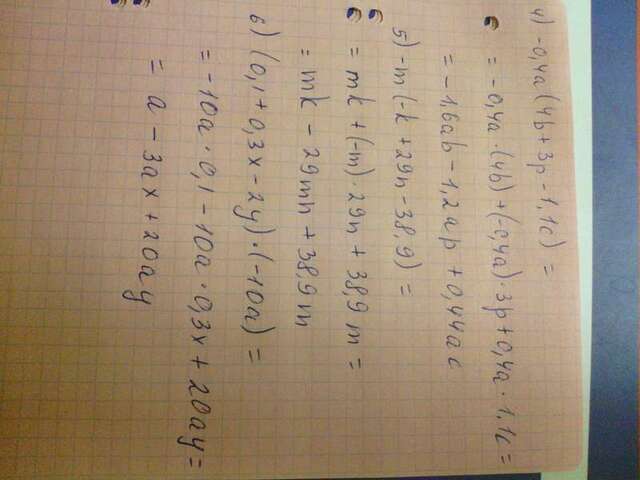 4) -0,4a(4b+3p-1,1c) =
= -0,4a·(4b)+(-0,4a)·3p+0,4a·1,1c=
= -1,6ab-1,2ap+0,44ac
5) -m(-k+29n-38,9) =
= mk +(-m)·29n+38,9 m =
= mk - 29mn + 38,9m
6) (0,1+0,3x-2y)·(-10a) =
= -10a·0,1-10a·0,3x+20ay=
= a - 3ax + 20ay